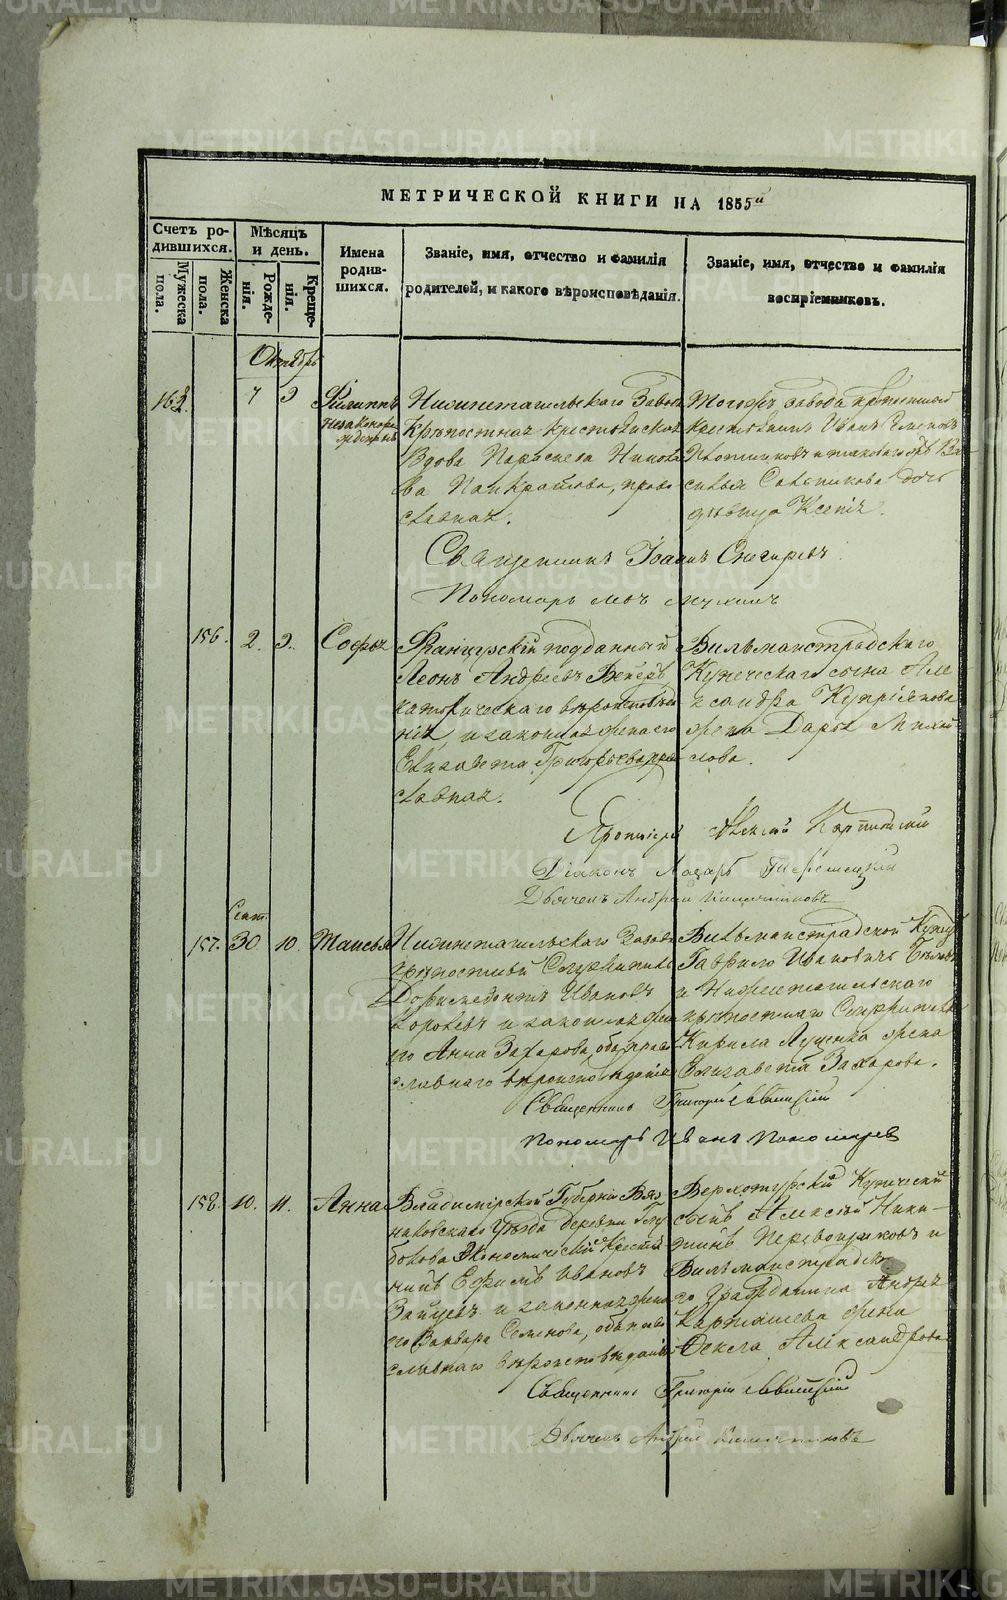 METRIKI.GASO-URAL.RU
МЕТРИЧЕСКОЙ КНИГИ НА 1855й
Счетъ ро-
дившихся.
Мужеска
пола.
Женска
пола.
Мѣсяцъ
и день.
Рожде-
нія.
Креще-
нія.
Имена
родив-
шихся.
Званіе, имя, отчество и фамилія
родителей, и какого вѣроисповѣданія.
Званіе, имя, отчество и фамилія
воспріемниковъ.
Октябрь
7 9 Филиппъ
незаконоро
жденный
Нижнетагильскаго Завода
Крѣпостная крестьянская
Вдова Параскева
Панкратова, право
славная.
Тогожъ завода
крестьянинъ Иванъ
Плотниковъ и
дочь
дѣвица Ксенія.
Священникъ Іоаннъ Снегиревъ
Пономарь Левъ Мухинъ
156. 2. 9. Софья
Французскій подданный
Леонъ Андреевъ
католическаго вѣроисповѣда
нія, и законная жена его
Елизавета Григорьева, пра
славная.
Вильманстрадскаго
Купеческаго сына Але
ксандра Купріянова
жена Дарья Михай
лова.
Протоіерей Карпинскій
Діаконъ Лазарь
Дьячекъ Андрей
157. Сент. 30. 10. Таисья
Нижнетагильскаго Завода
крѣпостный Служитель
Доримедонтъ Ивановъ
и законная жена
его Анна Захарова, оба право
славнаго вѣроисповѣданія
Вильманстрадской Купецъ
Гаврило Ивановичъ Бѣловъ
и Нижнетагильскаго
крѣпостнаго Служителя
Кирила Луценка жена
Елизавета Захарова.
Священникъ Григорій Левитскій
Пономарь Иванъ Пономаревъ
158. 10. 11. Анна
Владимірской Губерніи Вяз
никовскаго Уѣзда деревни Глу
бокова Экономическій Крестья
нинъ Ефимъ Ивановъ
Зайцевъ и законная жена
его Варвара Семенова, оба право
славнаго вѣроисповѣданія
Верхотурскій Купеческій
сынъ Алексѣй Ники-
тинъ Перевощиковъ и
Вильманстрадска
го Гражданина Андрея
Карташева жена
Фекла Александрова
Священникъ Григорій Левитскій
Дьячекъ Андрей